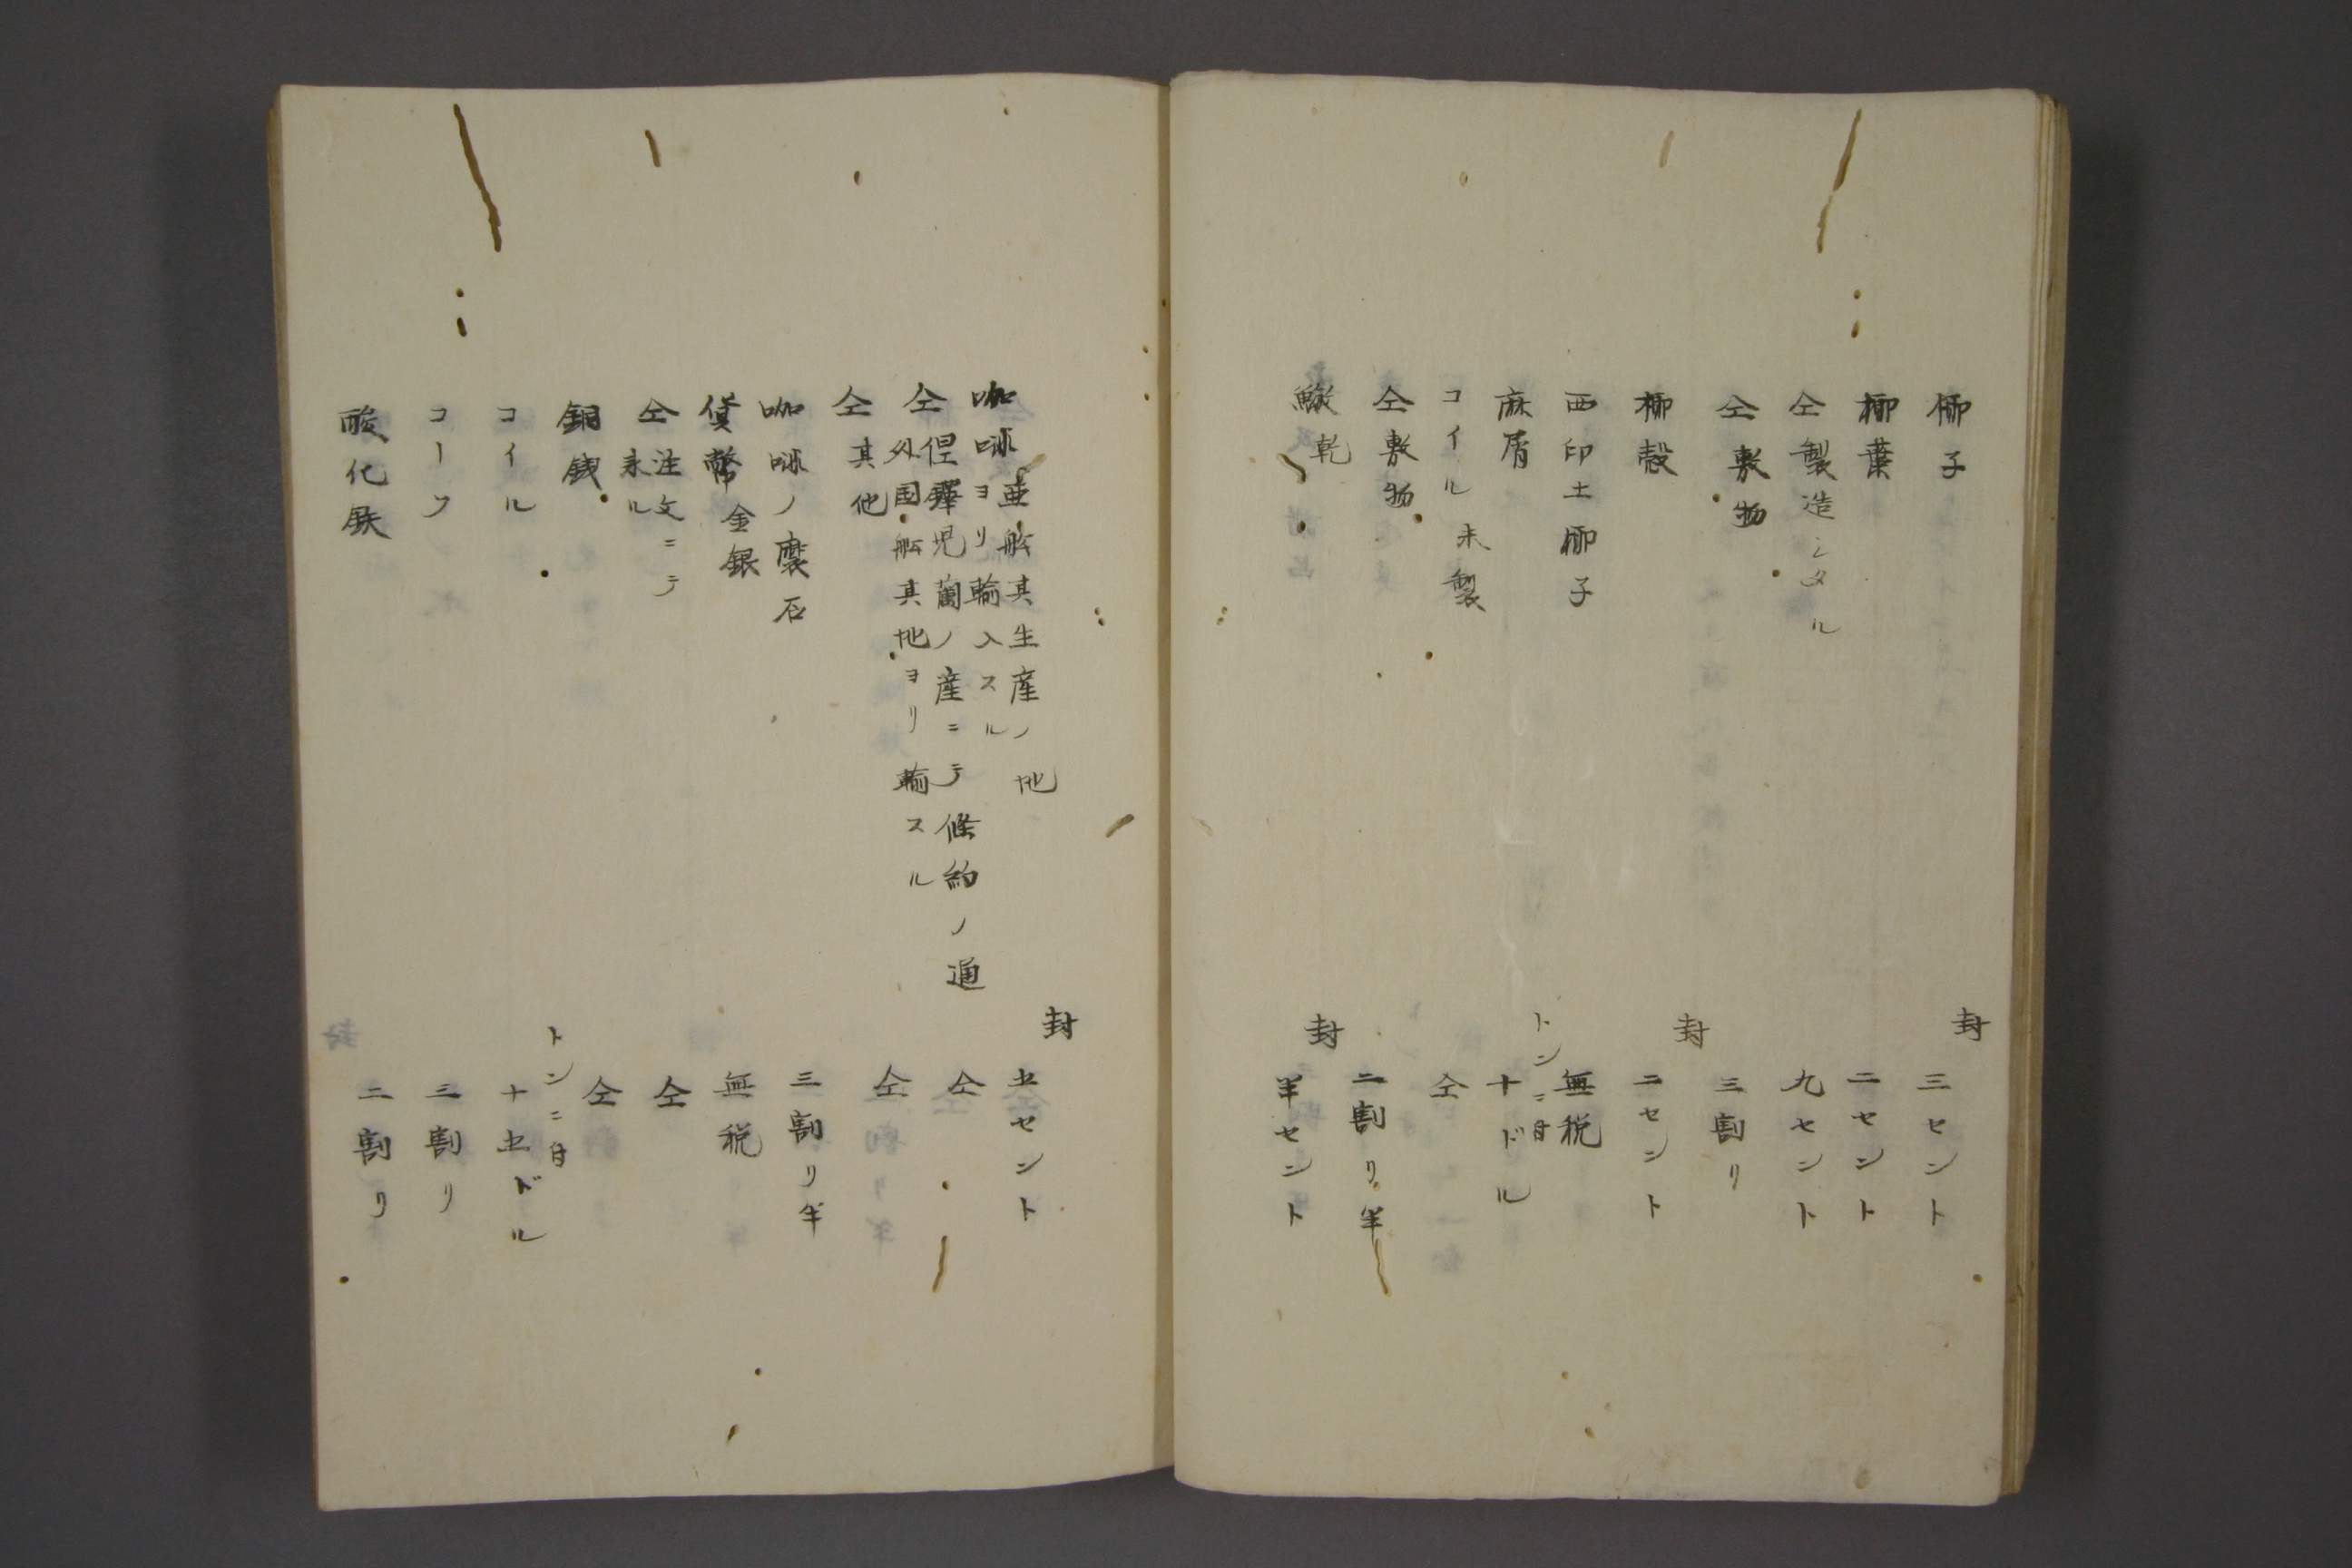 椰子 封 三セント
椰葉 二セント
仝製造シタル 九セント
仝敷物 三割リ
椰殻 封 二セント
西印土椰子 無税
麻屑 トンニ付 十ドル
コイル未製 仝
仝敷物 二割リ半
乾 封 半セント
咖啡 亜舩其生産ノ地ヨリ輸入スル 封 五セント
仝 児蘭ノ産ニテ條約ノ通外国舩其地ヨリ輸スル 仝
仝其他 仝
咖啡ノ磨石 三割リ半
貨幣金銀 無税
仝注文ニテ来ル 仝
銅銭 仝
コイル トンニ付 十五ドル
コーク 三割リ
酸化鉄 二割リ